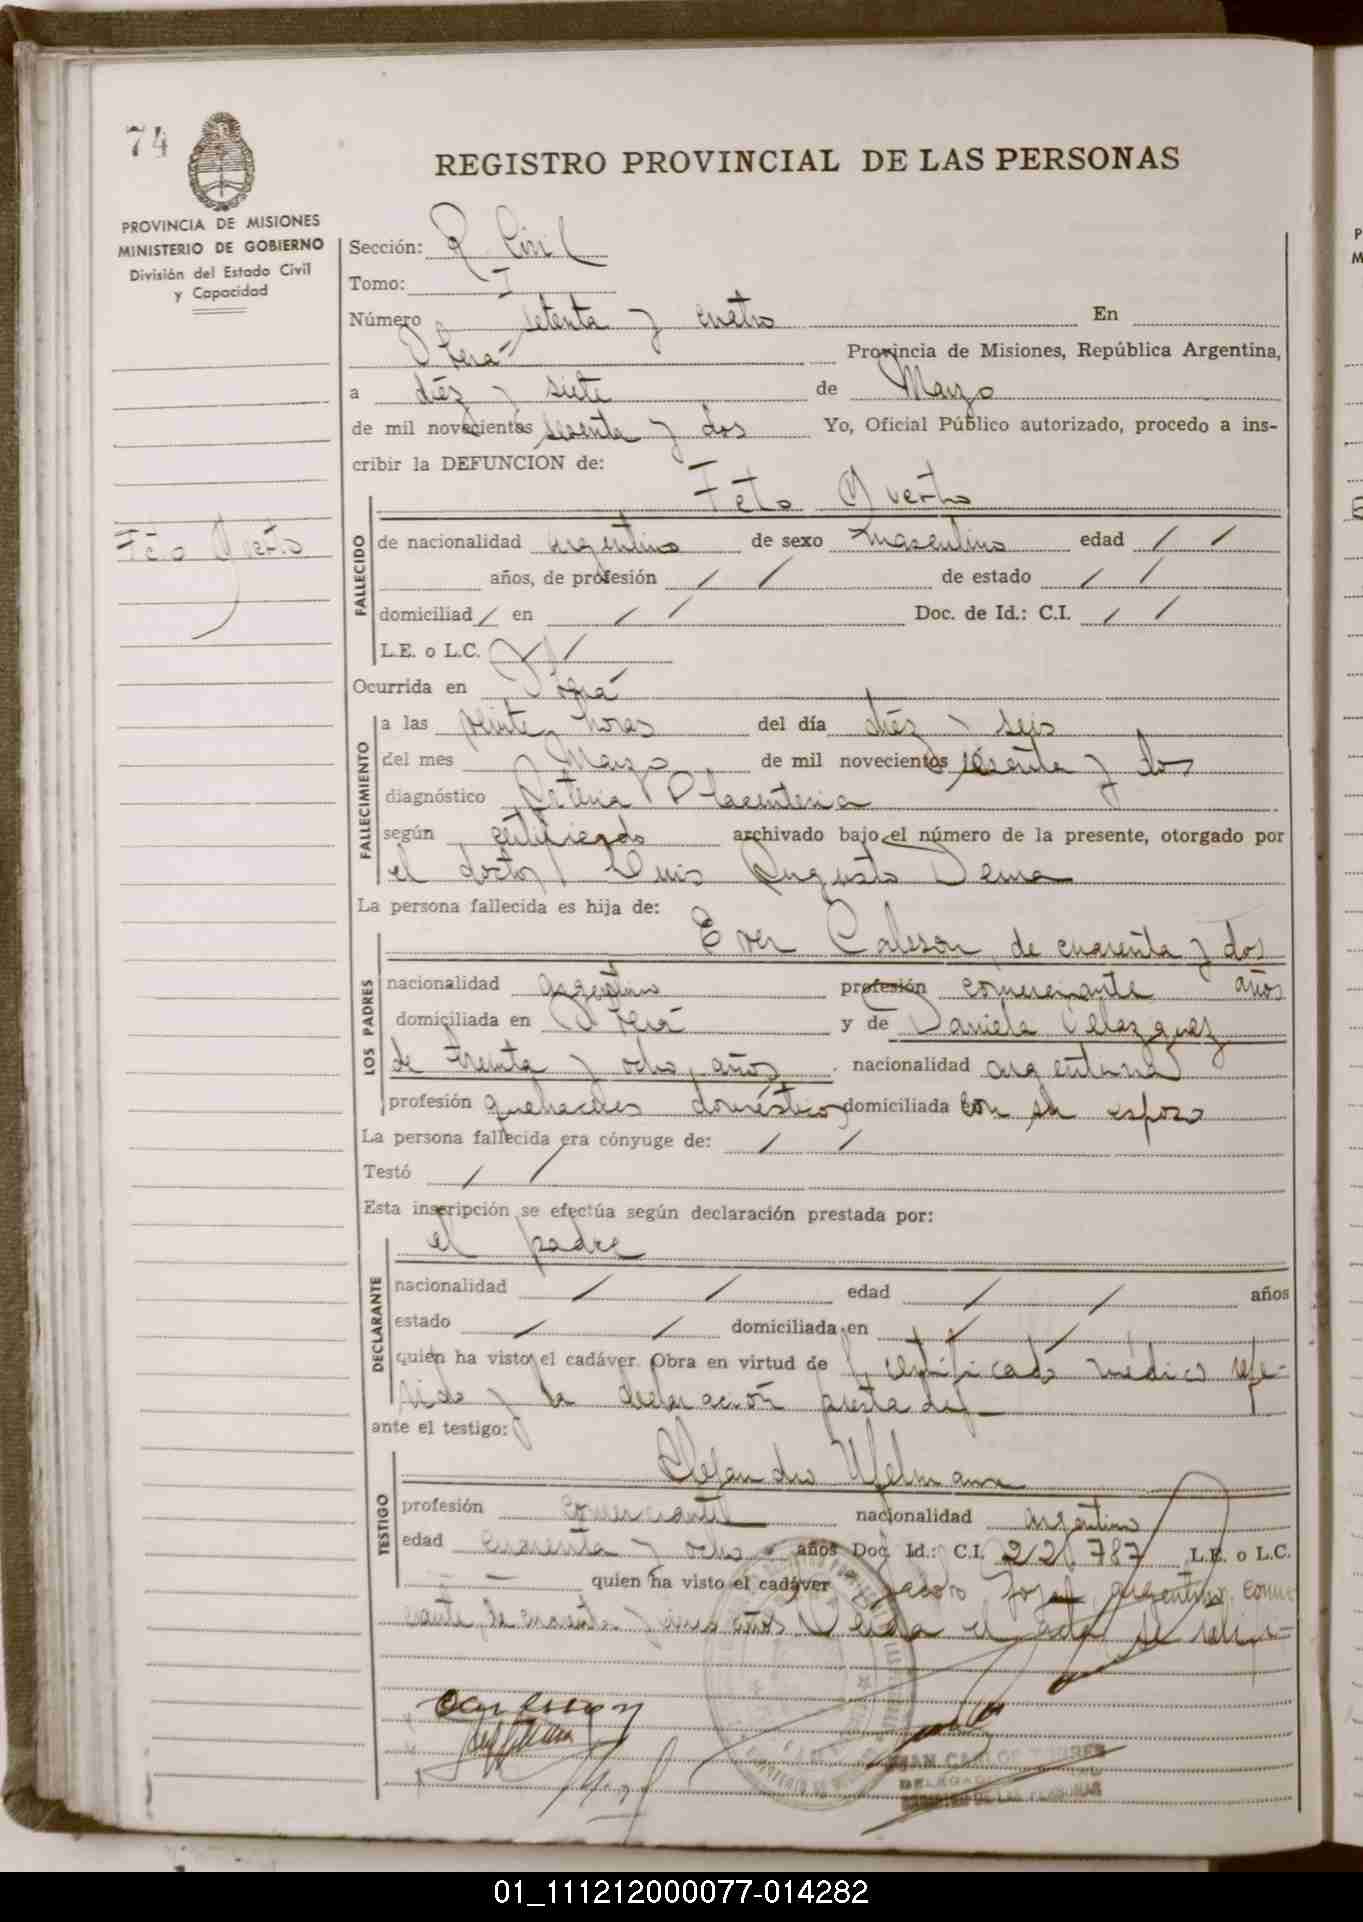 74
REGISTRO PROVINCIAL DE LAS PERSONAS
PROVINCIA DE MISIONES
MINISTERIO DE GOBIERNO
División del Estado Civil
y Capacidad
Sección: R. Civil
Tomo: I
Número setenta y cuatro En
Oberá Provincia de Misiones, República Argentina,
a diéz y siete de Marzo
de mil novecientos sesenta y dos Yo, Oficial Público autorizado, procedo a ins-
cribir la DEFUNCION de:
Feto Muerto
Feto Muerto
FALLECIDO
de nacionalidad argentino de sexo masculino edad / /
años, de profesión / / de estado / /
domiciliad / en / / Doc. de Id.: C.I. / /
L.E. o L.C. / /
Ocurrida en Oberá
FALLECIMIENTO
a las veinte horas del día diéz y seis
del mes Marzo de mil novecientos sesenta y dos
diagnóstico Placenteria
según certificado archivado bajo el número de la presente, otorgado por
el doctor Luis Augusto
La persona fallecida es hija de:
LOS PADRES
Ever de cuarenta y dos
nacionalidad argentino profesión comerciante años
domiciliada en Oberá y de Daniela Velazquez
de treinta y ocho años nacionalidad argentina
profesión quehaceres domésticos domiciliada con su esposo
La persona fallecida era cónyuge de: / /
Testó / /
Esta inscripción se efectúa según declaración prestada por:
el padre
DECLARANTE
nacionalidad / / edad / / años
estado / / domiciliada en / /
quién ha visto el cadáver. Obra en virtud de certificado médico refe-
rido y la declaración prestada
ante el testigo:
TESTIGO
Alejandro
profesión comerciante nacionalidad argentino
edad cuarenta y ocho años Doc. Id.: C.I. 221.787 L.E. o L.C.
quien ha visto el cadáver argentino, comer
ciante, de cuarenta y años Leida el acta se
JUAN CARLOS TORRES
01_111212000077-014282